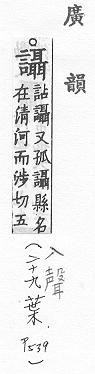 廣韻
讘
詀讘又狐讘縣名
在清河而涉切五
入聲
(二十九葉
P539)